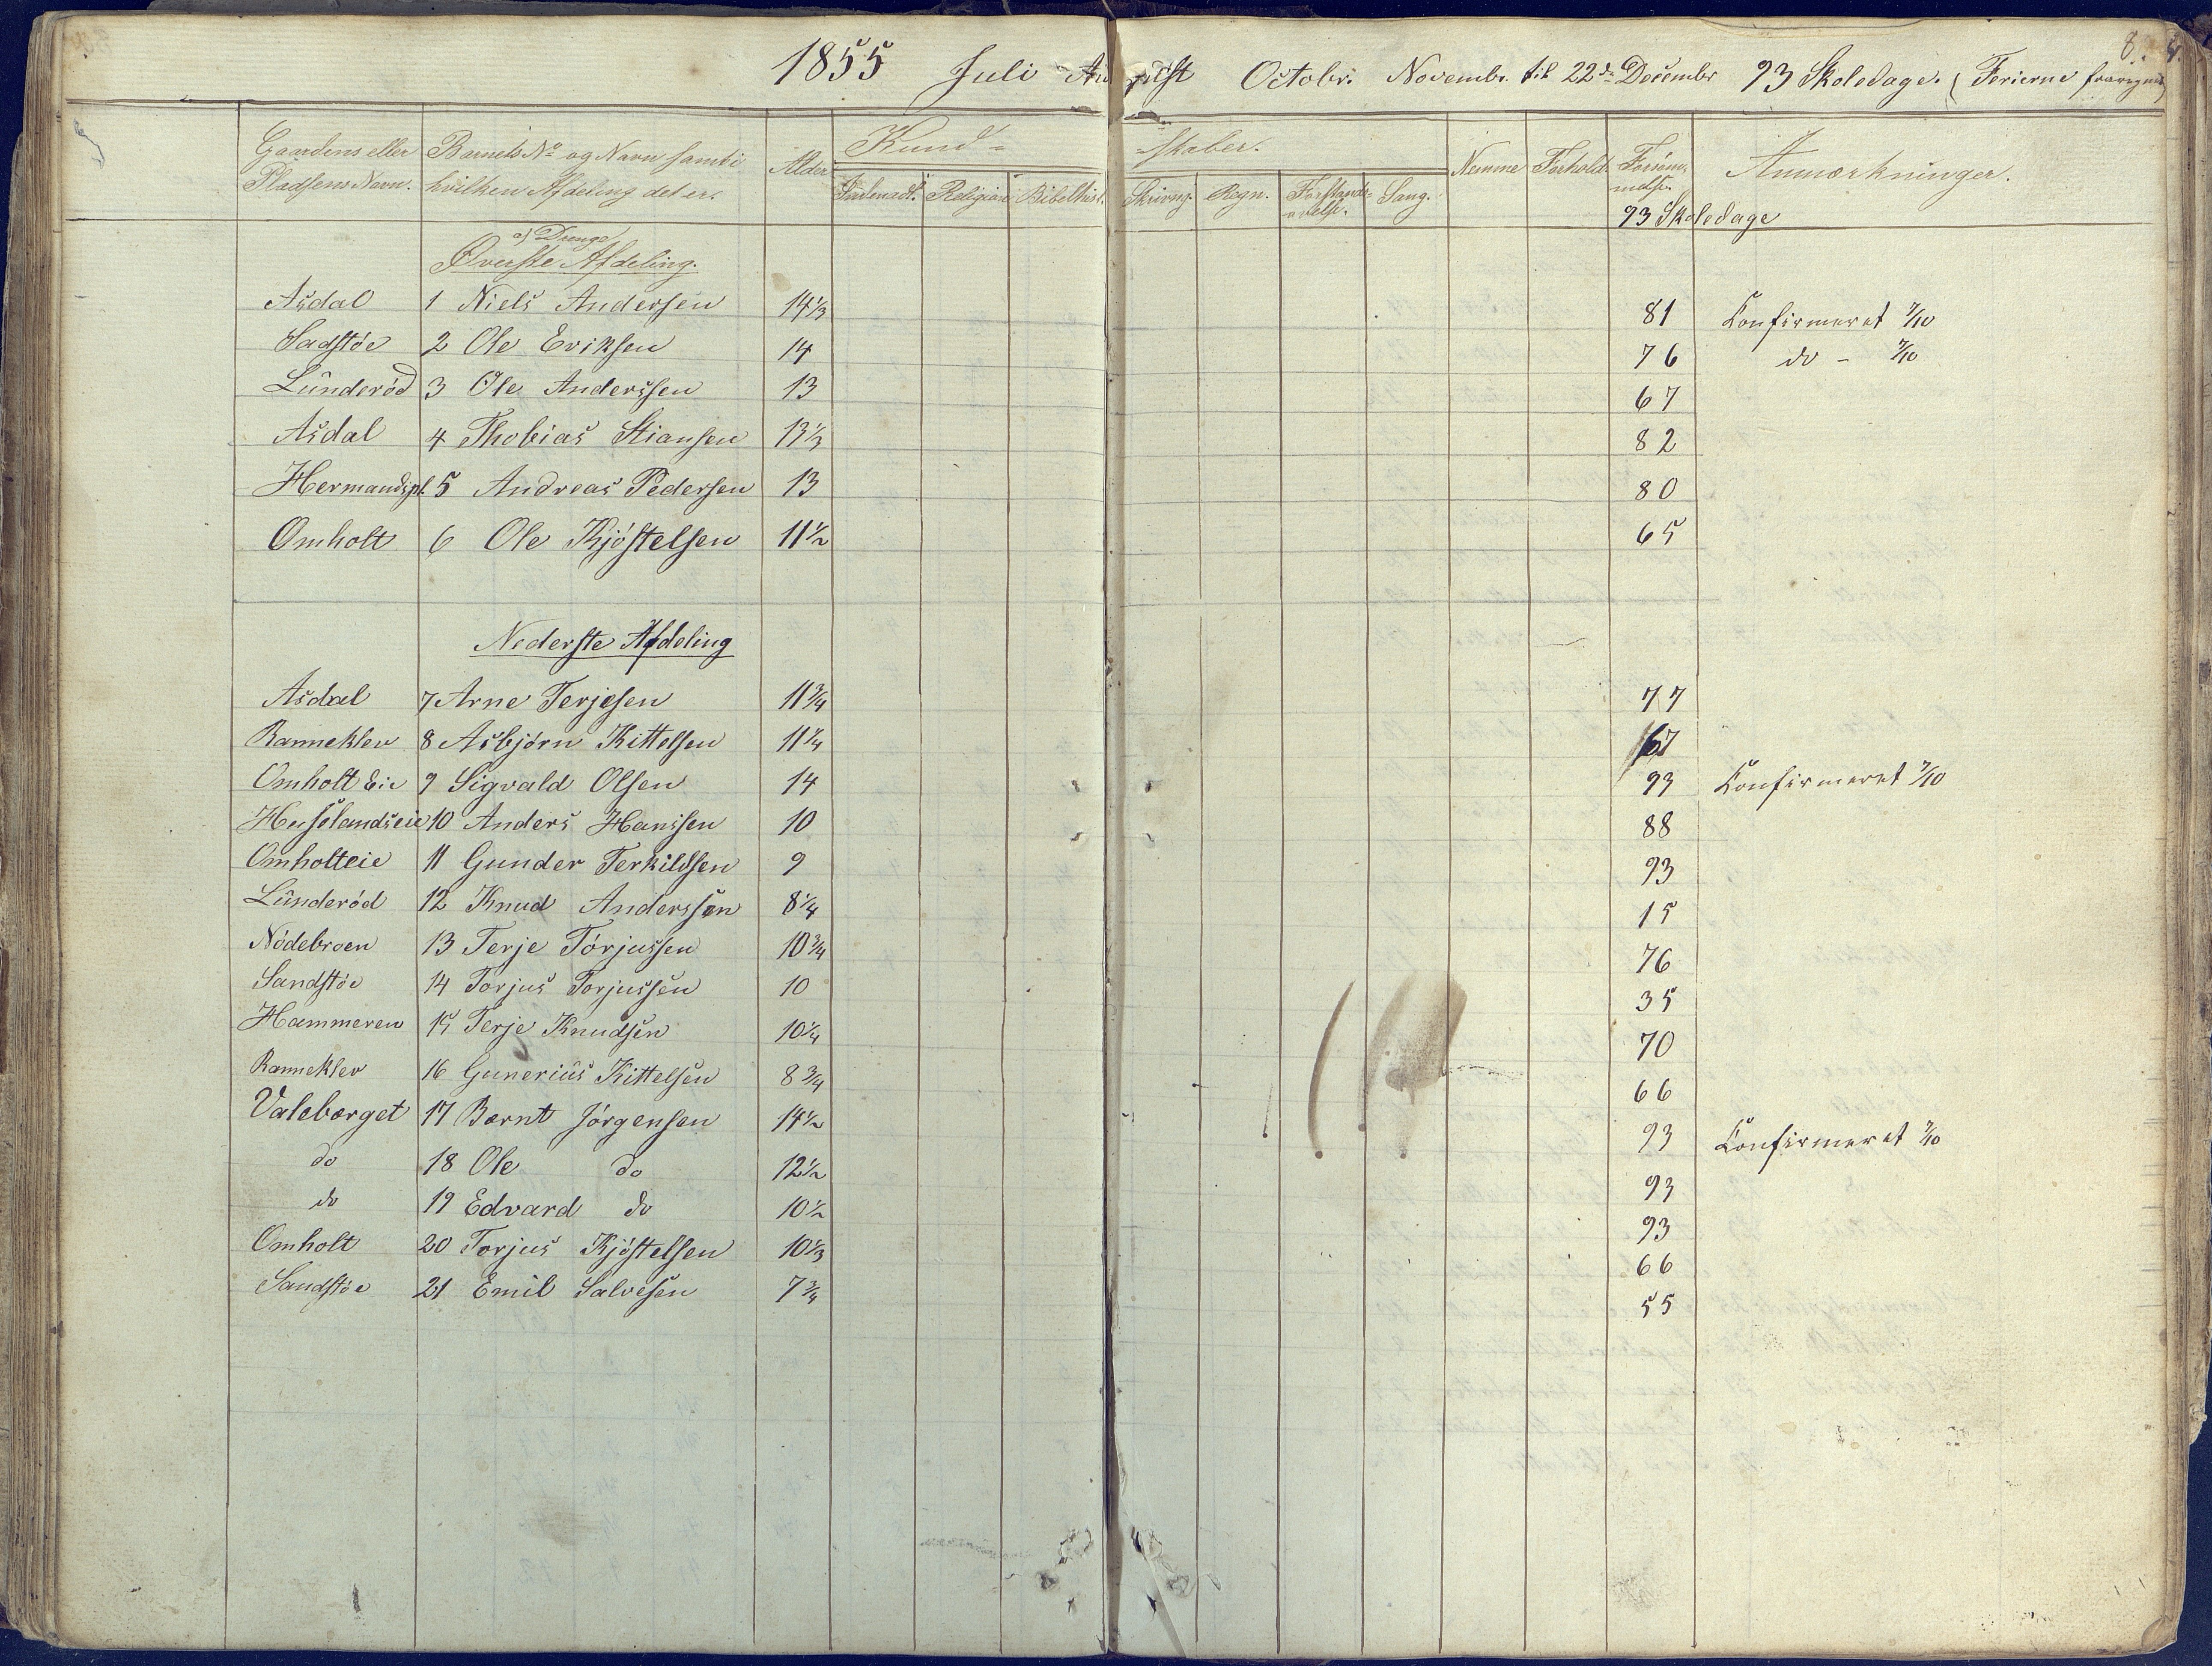 8.
1855 Juli August Octobr. Novembr. til 22de Decembr 93 Skoledage. (Ferierne fraregnet)
Gaardens eller Pladsens Navn. Barnets No og Navn samt i hvilken Afdeling det er. Alder Kundskaber. Nemme Forhold Forsømmelse Anmærkninger.
Indenadl. Religion Bibelhist. Skrivng. Regn. Forstandsøvelse. Sang.
93 Skoledage
a) Drenge
Øverste Afdeling.
Asdal 1 Niels Andersen 14 1/3 81 Confirmeret 7/10
Sadstöe 2 Ole Eriksen 14 76 do - 7/10
Lunderöd 3 Ole Anderssen 13 67
Asdal 4 Thobias Stiansen 13 1/3 82
Hermandspl. 5 Andreas Pedersen 13 80
Omholt 6 Ole Kjöstelsen 11 1/2 65
Nederste Afdeling
Asdal 7 Arne Terjesen 11 3/4 77
Ranneklev 8 Asbjörn Kittelsen 11 1/4 67
Omholt Eie 9 Sigvald Olsen 14 93 Confirmeret 7/10
Hersölandseie 10 Anders Hanssen 10 88
Omholteie 11 Gunder Terkildsen 9 93
Lunderöd 12 Knud Anderssen 8 1/4 15
Nödebroen 13 Terje Törjussen 10 3/4 76
Sandstöe 14 Torjus Torjussen 10 35
Hammeren 15 Terje Knudsen 10 1/4 70
Ranneklev 16 Gunerius Kittelsen 8 3/4 66
Valebærget 17 Bernt Jörgensen 14 1/2 93 Confirmeret 7/10
do 18 Ole do 12 1/2 93
do 19 Edvard do 10 1/2 93
Omholt 20 Torjus Kjöstelsen 10 1/3 66
Sandstöe 21 Emil Salvesen 7 3/4 55